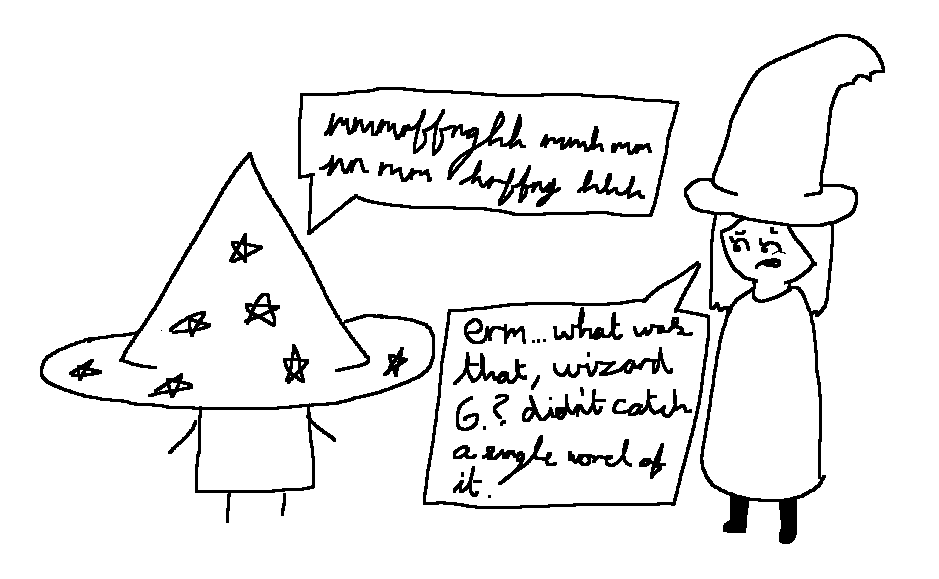 mmmmoffnghh mmh mm
nn mmm hnffng hhh
erm... what was
that, wizard
G.? didn't catch
a single word of
it.